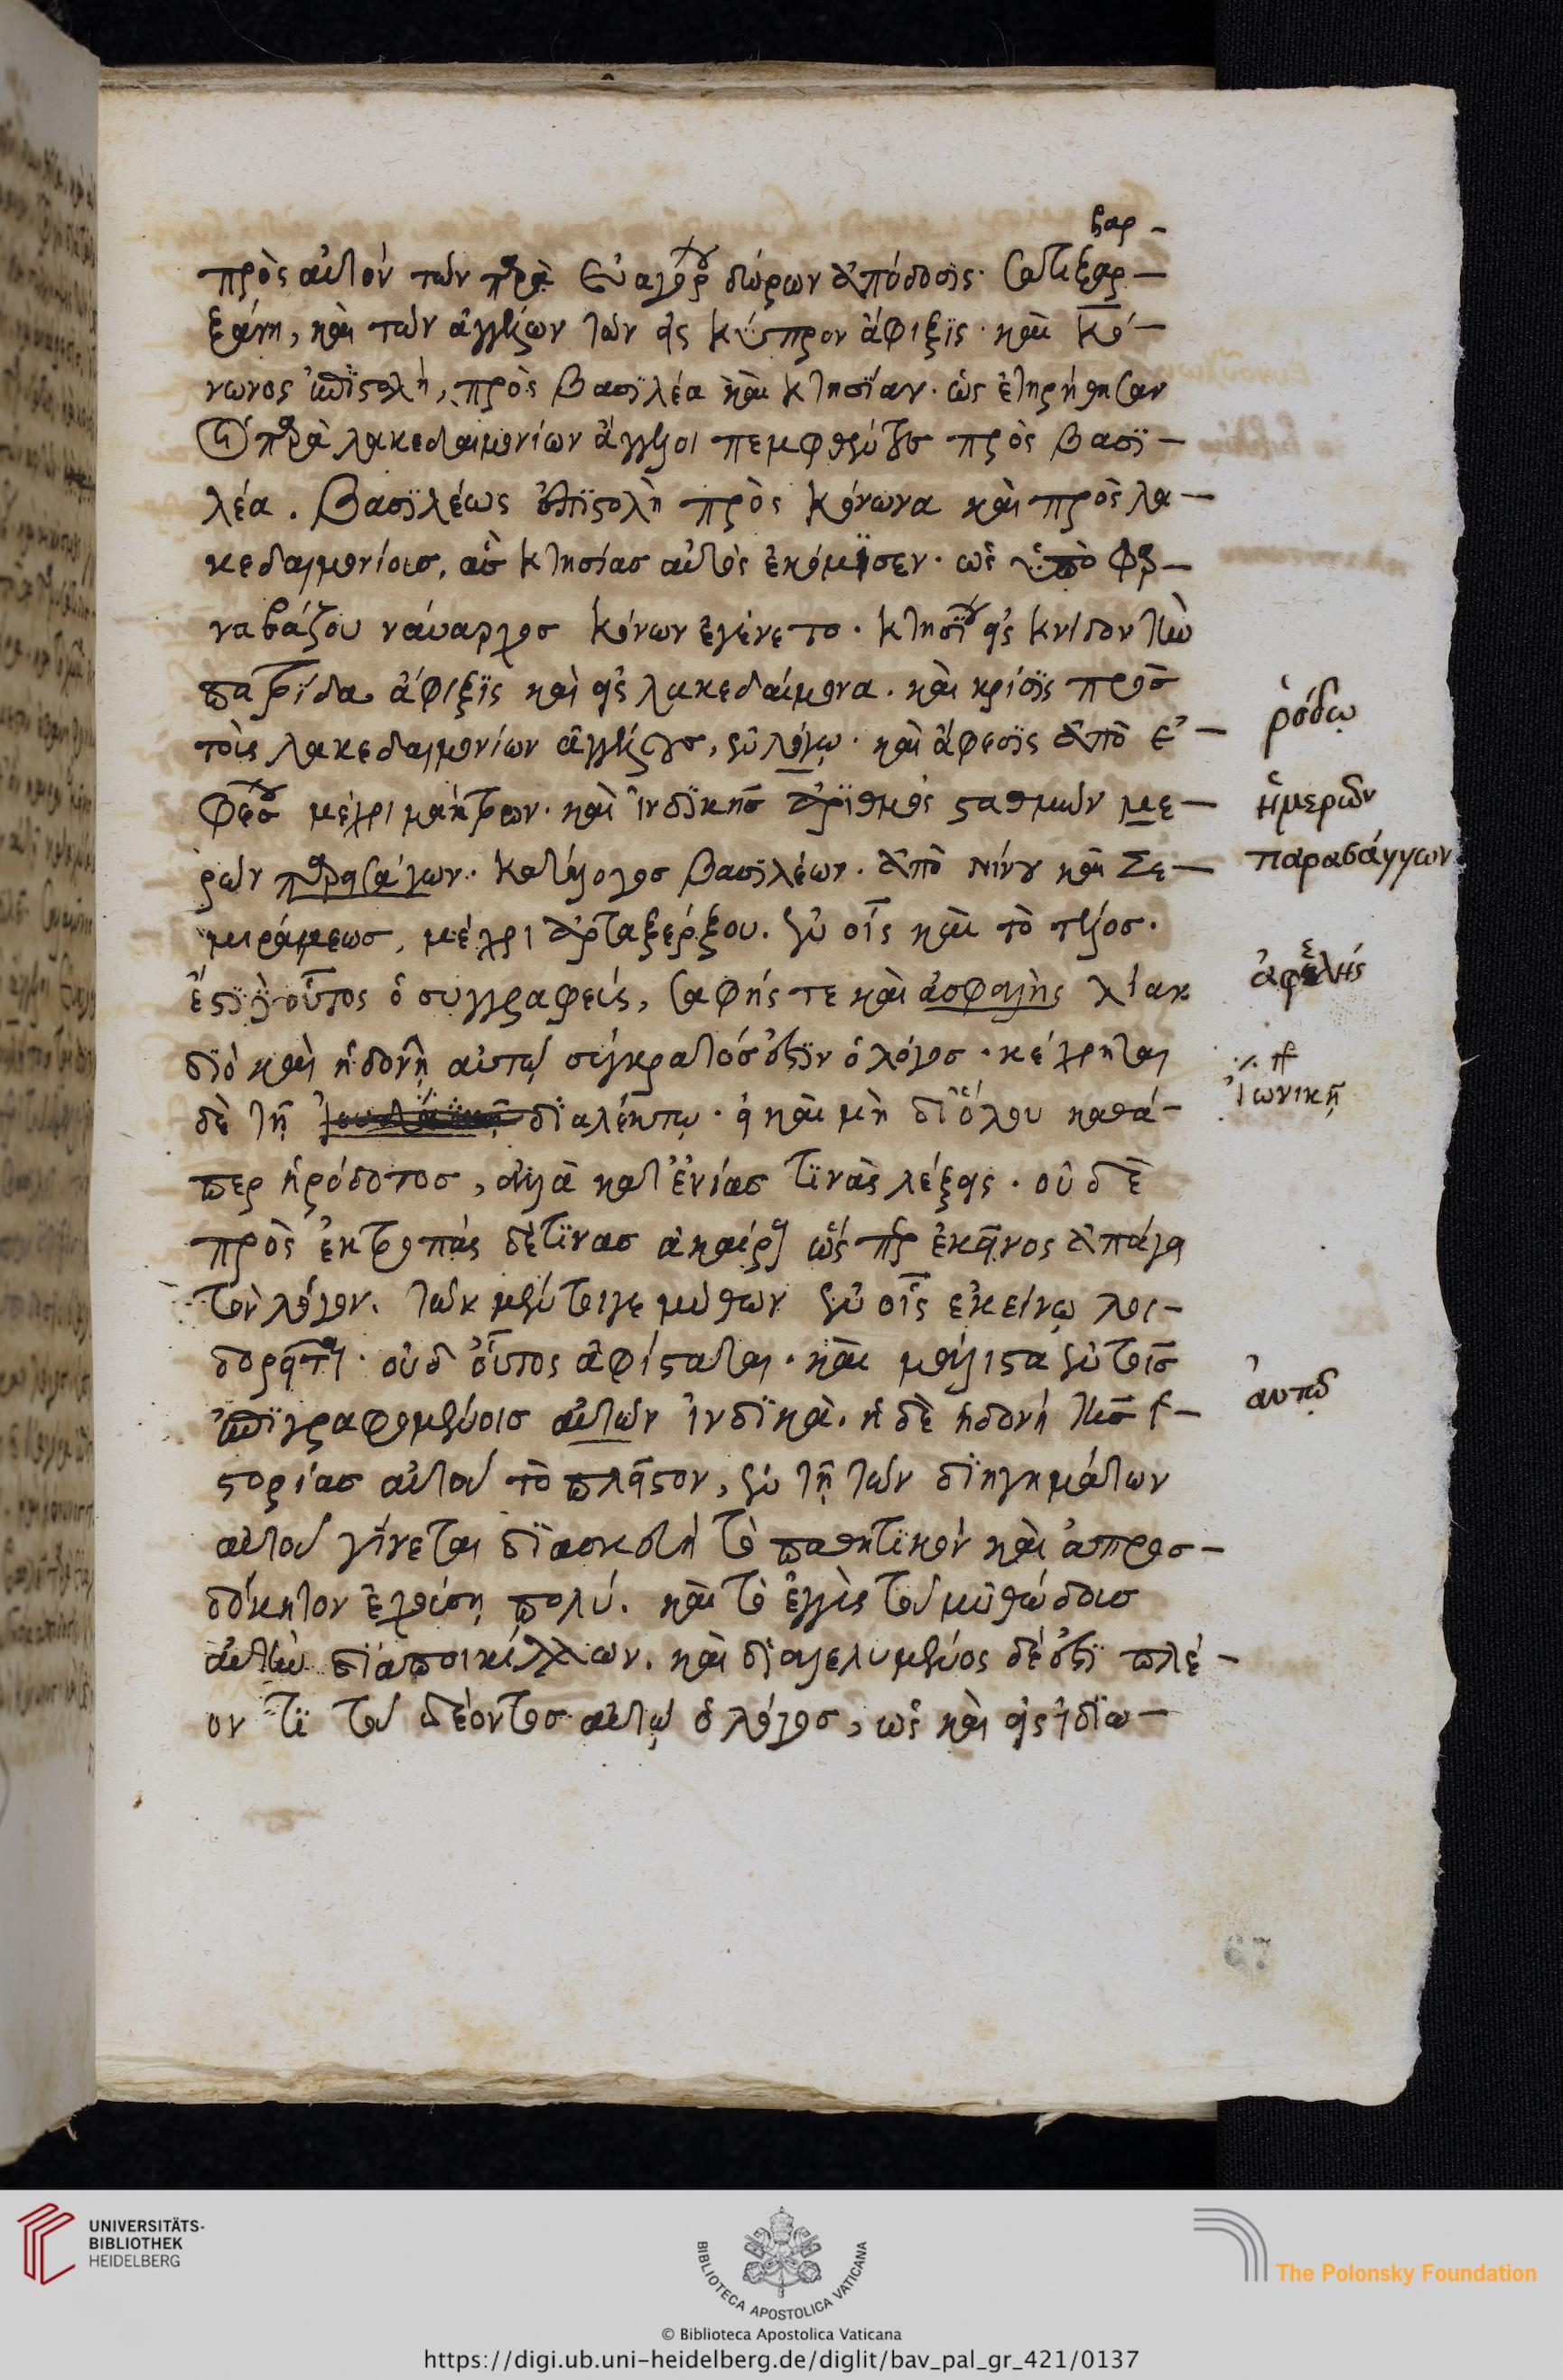 βαρ -
πρὸς αὐτὸν τῶν παρὰ Εὐαγόρου δώρων ἀπόδοσις· Σατιξαρ-
ξάνη, καὶ τῶν ἀγγέλων τῶν εἰς κύπρον ἄφιξις· καὶ Κό-
νωνος ἐπιστολὴ, πρὸς βασιλέα καὶ κτησίαν· ὡς ἐτηρήθησαν
οἱ παρὰ λακεδαιμονίων ἄγγελοι πεμφθέντες πρὸς βασι-
λέα. Βασιλέως ἐπιστολὴ πρὸς κόνωνα καὶ πρὸς λα-
κεδαιμονίους, ἃς κτησίας αὐτὸς ἐκόμισεν· ὡς ὑπὸ φαρ-
ναβάζου ναύαρχος κόνων ἐγένετο. κτησίου εἰς κνίδον τὴν
πατρίδα ἄφιξις καὶ εἰς λακεδαίμονα. καὶ κρίσις πρὸς
τοὺς λακεδαιμονίων ἀγγέλους, ἐν λόγω· καὶ ἄφεσις ἀπὸ ἐ-
φέσου μέχρι μάκτρων. καὶ ἰνδικῆς ἀριθμὸς σταθμῶν με-
ρῶν παρασάγων. κατάλογος βασιλέων. ἀπὸ νίνου καὶ Σε-
μιράμεως, μέχρι ἀρταξέρξου. ἐν οἷς καὶ τὸ τέλος.
ἔστι δὲ οὗτος ὁ συγγραφεὺς, σαφής τε καὶ ἀσφαλὴς λίαν
διὸ καὶ ἡδονῇ αὐτῷ σύγκρατός ἐστιν ὁ λόγος. κέχρηται
δὲ τῇ διαλέκτῳ. εἰ καὶ μὴ δι' ὅλου καθά-
περ ἡρόδοτος, ἀλλὰ κατ' ἐνίας τινὰς λέξεις. οὐδὲ
πρὸς ἐκτροπὰς δέ τινας ἀκαίρους ὥσπερ ἐκεῖνος ἀπάγει
τὸν λόγον. τῶν μέν τοιγε μύθων ἐν οἷς ἐκείνῳ λοι-
δορεῖται. οὐδ' οὗτος ἀφίσταται. καὶ μάλιστα ἐν τοῖς
ἐπιγραφομένοις αὐτῶν ἰνδικὰ. ἡ δὲ ἡδονὴ τῆς ἱ-
στορίας αὐτοῦ τὸ πλεῖστον, ἐν τῇ τῶν διηγημάτων
αὐτοῦ γίνεται διασκευῇ τὸ παθητικὸν καὶ ἀπροσ-
δόκητον ἐχούσῃ πολύ. καὶ τὸ ἐγγὺς τοῦ μυθώδους
αὐτὴν διαποικίλλων. καὶ διαλελυμένος δέ ἐστι πλέ-
ον τι τοῦ δέοντος αὐτῷ ὁ λόγος, ὡς καὶ εἰς ἰδιω-
ῥόδῳ
ἡμερῶν
παρασάγγων
ἀφελὴς
Ἰωνικῇ
αὐτοῦ
67
UNIVERSITÄTS-
BIBLIOTHEK
HEIDELBERG
BIBLIOTECA APOSTOLICA VATICANA
The Polonsky Foundation
© Biblioteca Apostolica Vaticana
https://digi.ub.uni-heidelberg.de/diglit/bav_pal_gr_421/0137